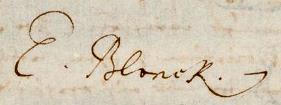 E. Blonck.